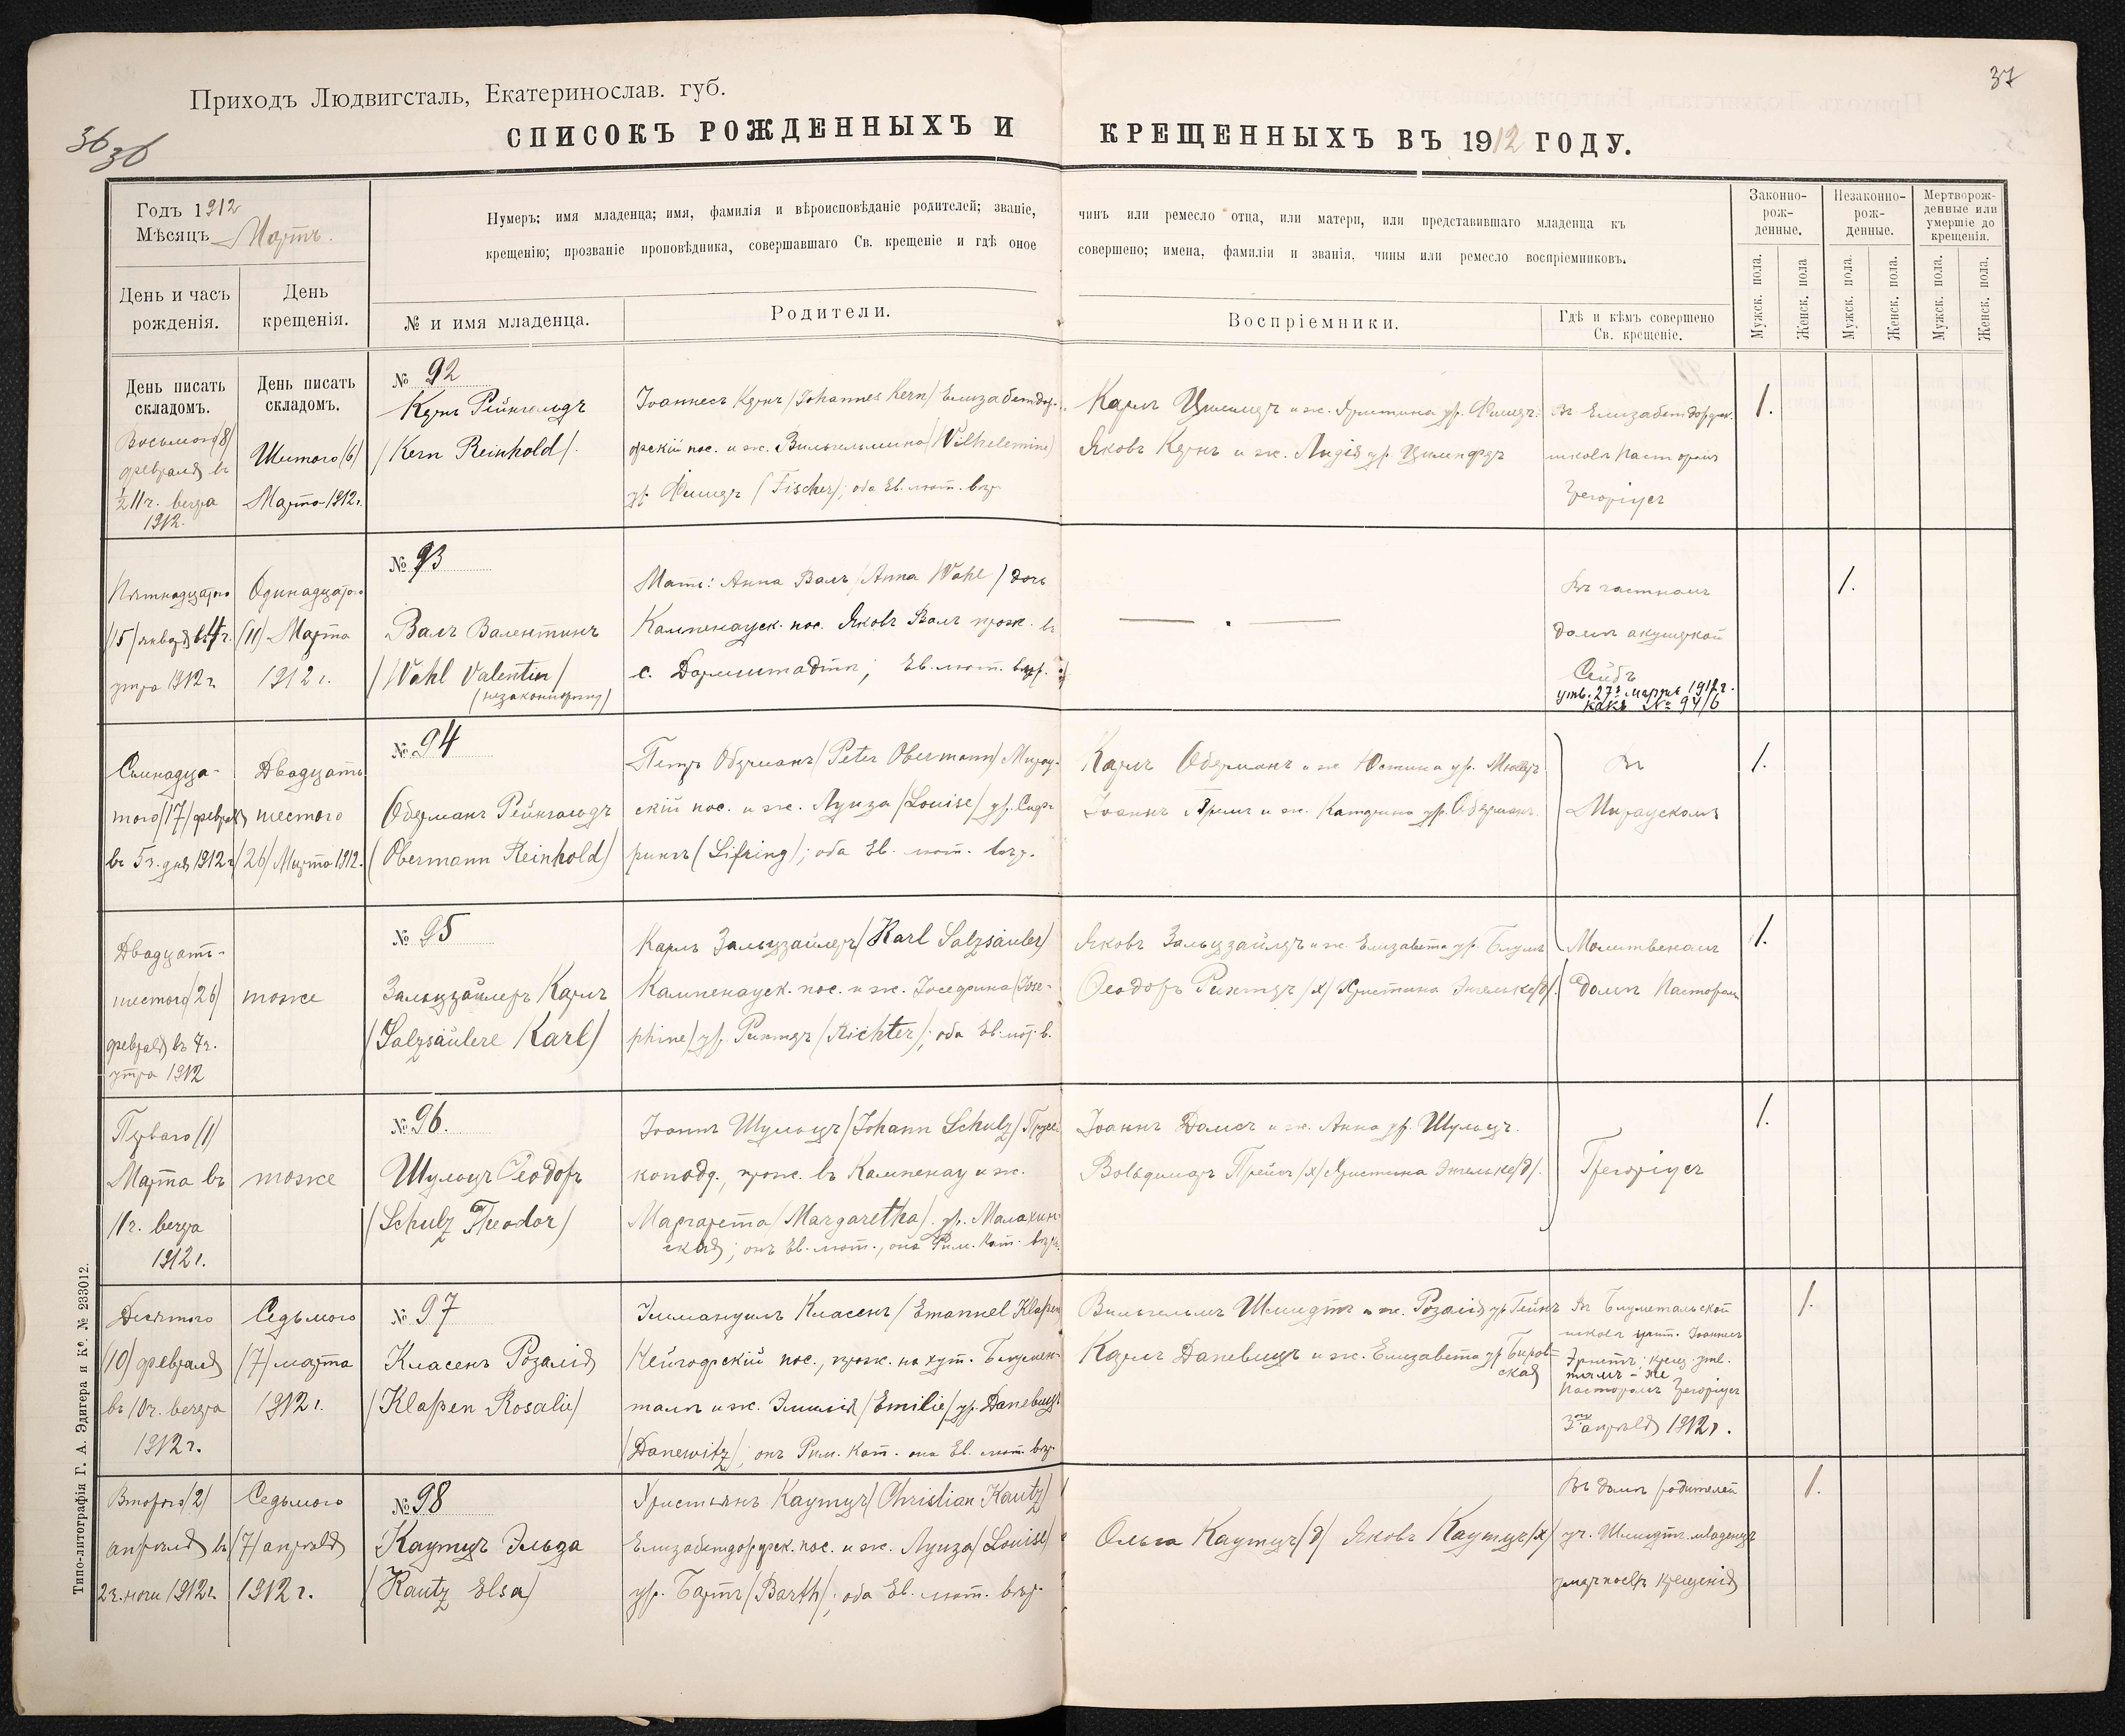 37
Приходъ Людвигсталь, Екатеринослав. губ.
36
36
СПИСОКЪ РОЖДЕННЫХЪ И КРЕЩЕННЫХЪ ВЪ 1912 ГОДУ.
Годъ 1912
Мѣсяцъ Мартъ.
День и часъ рожденія.
День крещенія.
Нумеръ; имя младенца; имя, фамилія и вѣроисповѣданіе родителей; званіе, чинъ или ремесло отца, или матери, или представившаго младенца къ
крещенію; прозваніе проповѣдника, совершавшаго Св. крещеніе и гдѣ оное совершено; имена, фамиліи и званія, чины или ремесло воспріемниковъ.
№ и имя младенца.
Родители.
Воспріемники.
Гдѣ и кѣмъ совершено
Св. крещеніе.
Законно-
рож-
денные.
Незаконно-
рож-
денные.
Мертворож-
денные или
умершіе до
крещенія.
Мужск. пола.
Женск. пола
Мужск. пола.
Женск. пола.
Мужск. пола.
Женск. пола.
День писать
складомъ.
День писать
складомъ.
Восьмого/8/
февраля въ
½11ч. вечера
1912.
Шестого/6/
Марта 1912г.
№ 92
Кернъ Рейнгольдъ
/Kern Reinhold/.
Іоаннесъ Кернъ /Johannes Kern/ Елизабетдор-
фскій пос. и ж. Вильгельмина /Wilhelemine/
ур. Фишеръ (Fischer); оба Ев. лют. вѣр.
Карлъ и ж. Христина ур. Фишеръ.
Яковъ Кернъ и ж. Лидія ур.
Въ Елизабетдорфск.
школѣ Пасторомъ
1.
Пятнадцатаго
/15/ января въ 4 ч.
утра 1912 г.
Одинадцатаго
/11/ Марта
1912 г.
№ 93
Валъ Валентинъ
/Wahl Valentin/
(незаконнорожд)
Мать: Анна Валъ /Anna Wahl/ дочь
Кампенауск. пос. Яковъ Валъ прож. въ
с. Дармштадтѣ; Ев. лют. вѣр.
Въ частномъ
домѣ акушеркой
Сейбъ
утв. 27го марта 1912г.
какъ № 94/6
1.
Семнадца-
того/17/ февраля
въ 5 ч. дня 1912 г.
Двадцать
шестого
/26/ Марта 1912.
№ 94
Оберманъ Рейнгольдъ
(Obermann Reinhold)
Петръ Оберманъ /Peter Obermann/ Мирау-
скій пос. и ж. Луиза /Louise/ ур. Сиф-
рингъ (Sifring); оба Ев. лют. вѣр.
Карлъ Оберманъ и ж Юстина ур.
Іоаннъ и ж. Катерина ур. Оберманъ.
Въ
Мираускомъ
1.
Двадцать-
шестого/26/
февраля въ 4ч.
утра 1912
тоже
№ 95
Зальцзайлеръ Карлъ
(Salzsäulere Karl)
Карлъ Зальцзайлеръ /Karl Salzsäuler/
Кампенауск. пос. и ж. Іосефина /Jose-
phine/ ур. Рихтеръ /Richter/; оба Ев. лют. в.
Яковъ Зальцзайлеръ и ж. Елизавета ур. Блумъ
Ѳеодоръ Рихтеръ /х/ Христина Энгельке/д/.
Молитвенномъ
Домѣ Пасторомъ
1.
Перваго /1/
Марта въ
11ч. вечера
1912 г.
тоже
№ 96.
Шульцъ Ѳеодоръ
(Schulz Theodor)
Іоаннъ Шульцъ /Johann Schulz/ Прусс-
коподд., прож. въ Кампенау и ж.
Маргарета /Margaretha/. ур. Малахин-
ская; онъ Ев. лют., она Рим. Кат. вѣр.
Іоаннъ и ж. Анна ур. Шульцъ.
Вольдемаръ Прейсъ /х/ Христина Энгельке/д/.
1.
Десятого
/10/ февраля
въ 10ч. вечера
1912 г.
Седьмого
/7/ марта
1912 г.
№ 97
Класенъ Розалія
(Klaßen Rosalie)
Эммануилъ Класенъ /Emanuel Klaßen
пос., прож. на хут. Блумен-
талѣ и ж. Эмилія /Emilie/ ур. Даневицъ
(Danewitz); онъ Рим. Кат. она Ев. лют. вѣр.
Вильгельмъ Шмидтъ и ж. Розалія ур. Гейнъ
Карлъ Даневицъ и ж. Елизавета ур. Биров-
ская
Въ Блументальской
школѣ учит. Іоаннесъ
тамъ-же
Пасторомъ
3го апрѣля 1912 г.
1.
Второго /2/
апрѣля въ
2ч. ночи 1912г.
Седьмого
/7/ апрѣля
1912 г.
№ 98
Каутцъ Эльза
(Kautz Elsa)
Христьянъ Каутцъ /Christian Kautz/
Елизабетдорфск. пос. и ж. Луиза /Louise/
ур. Бартъ /Barth/; оба Ев. лют. вѣр.
Ольга Каутцъ /д/ Яковъ Каутцъ /х/
Въ домѣ родителей
уч. Шмидтъ младенецъ
умеръ послѣ крещенія
1.
Типо-литографія Г. А. Эдигера и Кº. № 233012.